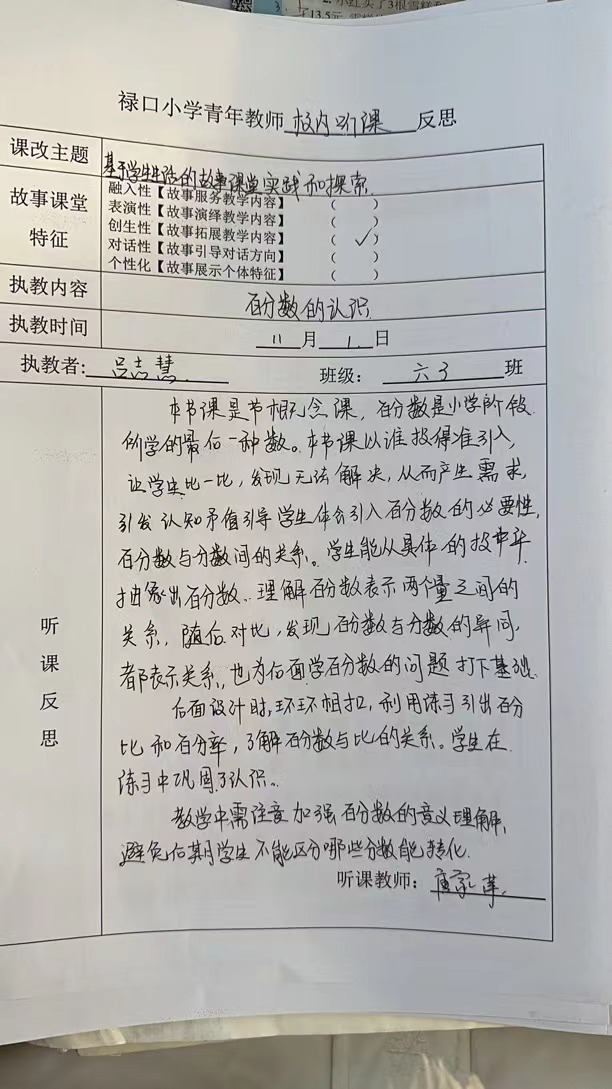 2. 小红买了3根雪糕
了13.5元
禄口小学青年教师 校内听课 反思
课改主题 基于学生生活的故事课堂实践和探索
故事课堂
特征
融入性【故事服务教学内容】 ( )
表演性【故事演绎教学内容】 ( )
创生性【故事拓展教学内容】 ( ✓ )
对话性【故事引导对话方向】 ( )
个性化【故事展示个体特征】 ( )
执教内容 百分数的认识
执教时间 11 月 1 日
执教者: 吕志慧 班级: 六3 班
听课反思
本节课是节概念课,百分数是小学阶段
所学的最后一种数。本节课以谁投得准引入,
让学生比一比,发现无法解决,从而产生需求,
引发认知矛盾引导学生体会引入百分数的必要性,
百分数与分数间的关系。学生能从具体的投中率
抽象出百分数。理解百分数表示两个量之间的
关系,随后对比,发现百分数与分数的异同,
都表示关系,也为后面学百分数的问题打下基础.
后面设计时,环环相扣,利用练习引出百分
比和百分率,了解百分数与比的关系。学生在
练习中巩固了认识。
教学中需注意加强百分数的意义理解,
避免后期学生不能区分哪些分数能转化.
听课教师: